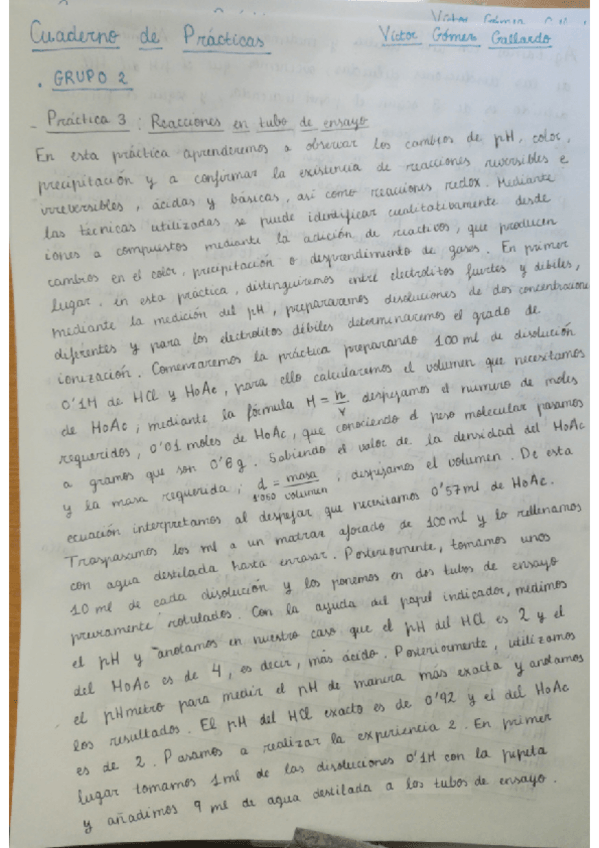 Cuaderno de Prácticas
Víctor Gómez Gallardo
. GRUPO 2
- Práctica 3 : Reacciones en tubo de ensayo
En esta práctica aprenderemos a observar los cambios de pH, color,
precipitación y a confirmar la existencia de reacciones reversibles e
irreversibles, ácidas y básicas, así como reacciones redox. Mediante
las técnicas utilizadas se puede identificar cualitativamente desde
iones a compuestos mediante la adición de reactivos, que producen
cambios en el color, precipitación o desprendimiento de gases. En primer
lugar, en esta práctica, distinguiremos entre electrolitos fuertes y débiles,
mediante la medición del pH, prepararemos disoluciones de dos concentraciones
diferentes y para los electrolitos débiles determinaremos el grado de
ionización. Comenzaremos la práctica preparando 100 ml de disolución
0'1M de HCl y HoAc, para ello calcularemos el volumen que necesitamos
de HoAc; mediante la fórmula M = n/V despejamos el número de moles
requeridos, 0'01 moles de HoAc, que conociendo el peso molecular pasamos
a gramos que son 0'6g. Sabiendo el valor de la densidad del HoAc
y la masa requerida; d = masa/volumen; despejamos el volumen. De esta
1'050
ecuación interpretamos al despejar que necesitamos 0'57ml de HoAc.
Traspasamos los ml a un matraz aforado de 100ml y lo rellenamos
con agua destilada hasta enrasar. Posteriormente, tomamos unos
10 ml de cada disolución y los ponemos en dos tubos de ensayo
previamente rotulados. Con la ayuda del papel indicador, medimos
el pH y anotamos en nuestro caso que el pH del HCl es 2 y el
del HoAc es de 4, es decir, más ácido. Posteriormente, utilizamos
el pHmetro para medir el pH de manera más exacta y anotamos
los resultados. El pH del HCl exacto es de 0'92 y el del HoAc
es de 2. Pasamos a realizar la experiencia 2. En primer
lugar tomamos 1ml de las disoluciones 0'1M con la pipeta
y añadimos 9 ml de agua destilada a los tubos de ensayo.